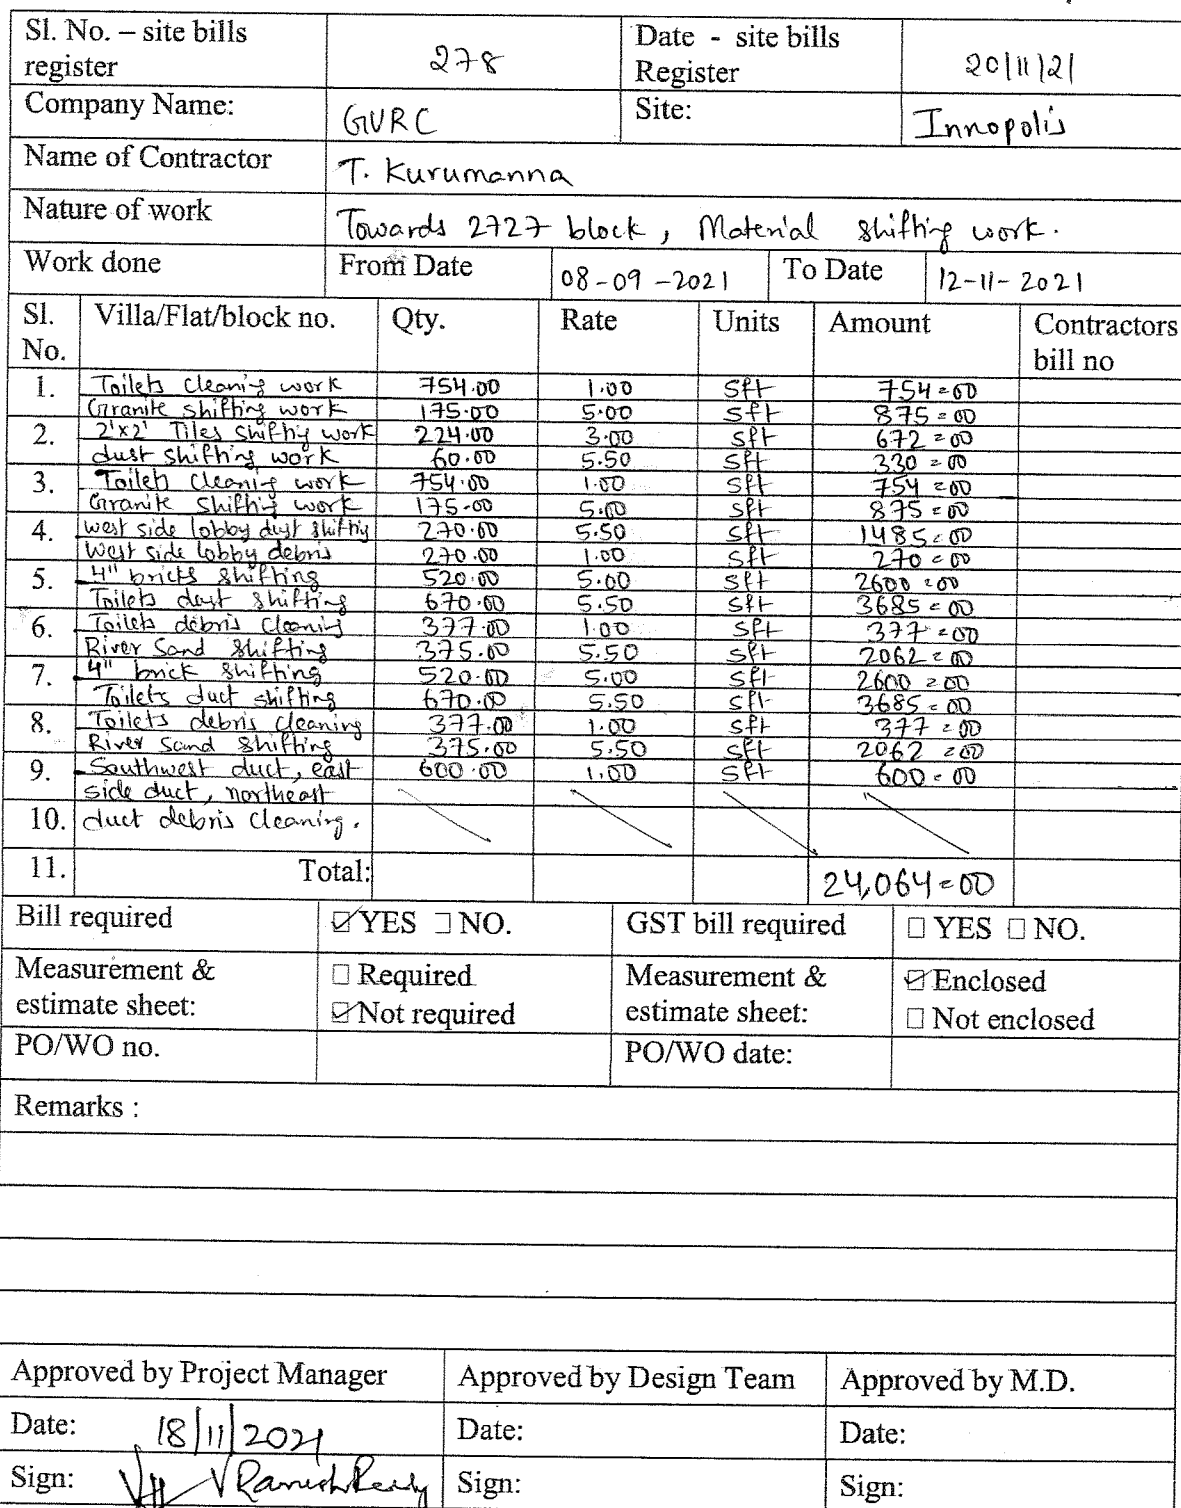 Sl. No. – site bills register 278 Date - site bills Register 20/11/21
Company Name: GVRC Site: Innopolis
Name of Contractor T. Kurumanna
Nature of work Towards 2727 block, Material shifting work.
Work done From Date 08-09-2021 To Date 12-11-2021
Sl. No. Villa/Flat/block no. Qty. Rate Units Amount Contractors bill no
1. Toilets cleaning work 754.00 1.00 sft 754=00
Granite shifting work 175.00 5.00 sft 875=00
2. 2'x2' Tiles shiftig work 224.00 3.00 sft 672=00
dust shifting work 60.00 5.50 sft 330=00
3. Toilets cleaning work 754.00 1.00 sft 754=00
Granite shifting work 175.00 5.00 sft 875=00
4. west side lobby dust shifting 270.00 5.50 sft 1485=00
West side lobby debris 270.00 1.00 sft 270=00
5. 4" bricks shifting 520.00 5.00 sft 2600=00
Toilets dust shifting 670.00 5.50 sft 3685=00
6. Toilets debris cleaning 377.00 1.00 sft 377=00
River Sand shifting 375.00 5.50 sft 2062=00
7. 4" brick shifting 520.00 5.00 sft 2600=00
Toilets duct shifting 670.00 5.50 sft 3685=00
8. Toilets debris cleaning 377.00 1.00 sft 377=00
River Sand shifting 375.00 5.50 sft 2062=00
9. Southwest duct, east 600.00 1.00 sft 600=00
side duct, northeast
10. duct debris cleaning.
11. Total: 24,064=00
Bill required ☑YES ☐NO. GST bill required ☐ YES ☐ NO.
Measurement & estimate sheet: ☐ Required ☑Not required Measurement & estimate sheet: ☑Enclosed ☐ Not enclosed
PO/WO no. PO/WO date:
Remarks :
Approved by Project Manager Approved by Design Team Approved by M.D.
Date: 18/11/2021 Date: Date:
Sign: Sign: Sign: